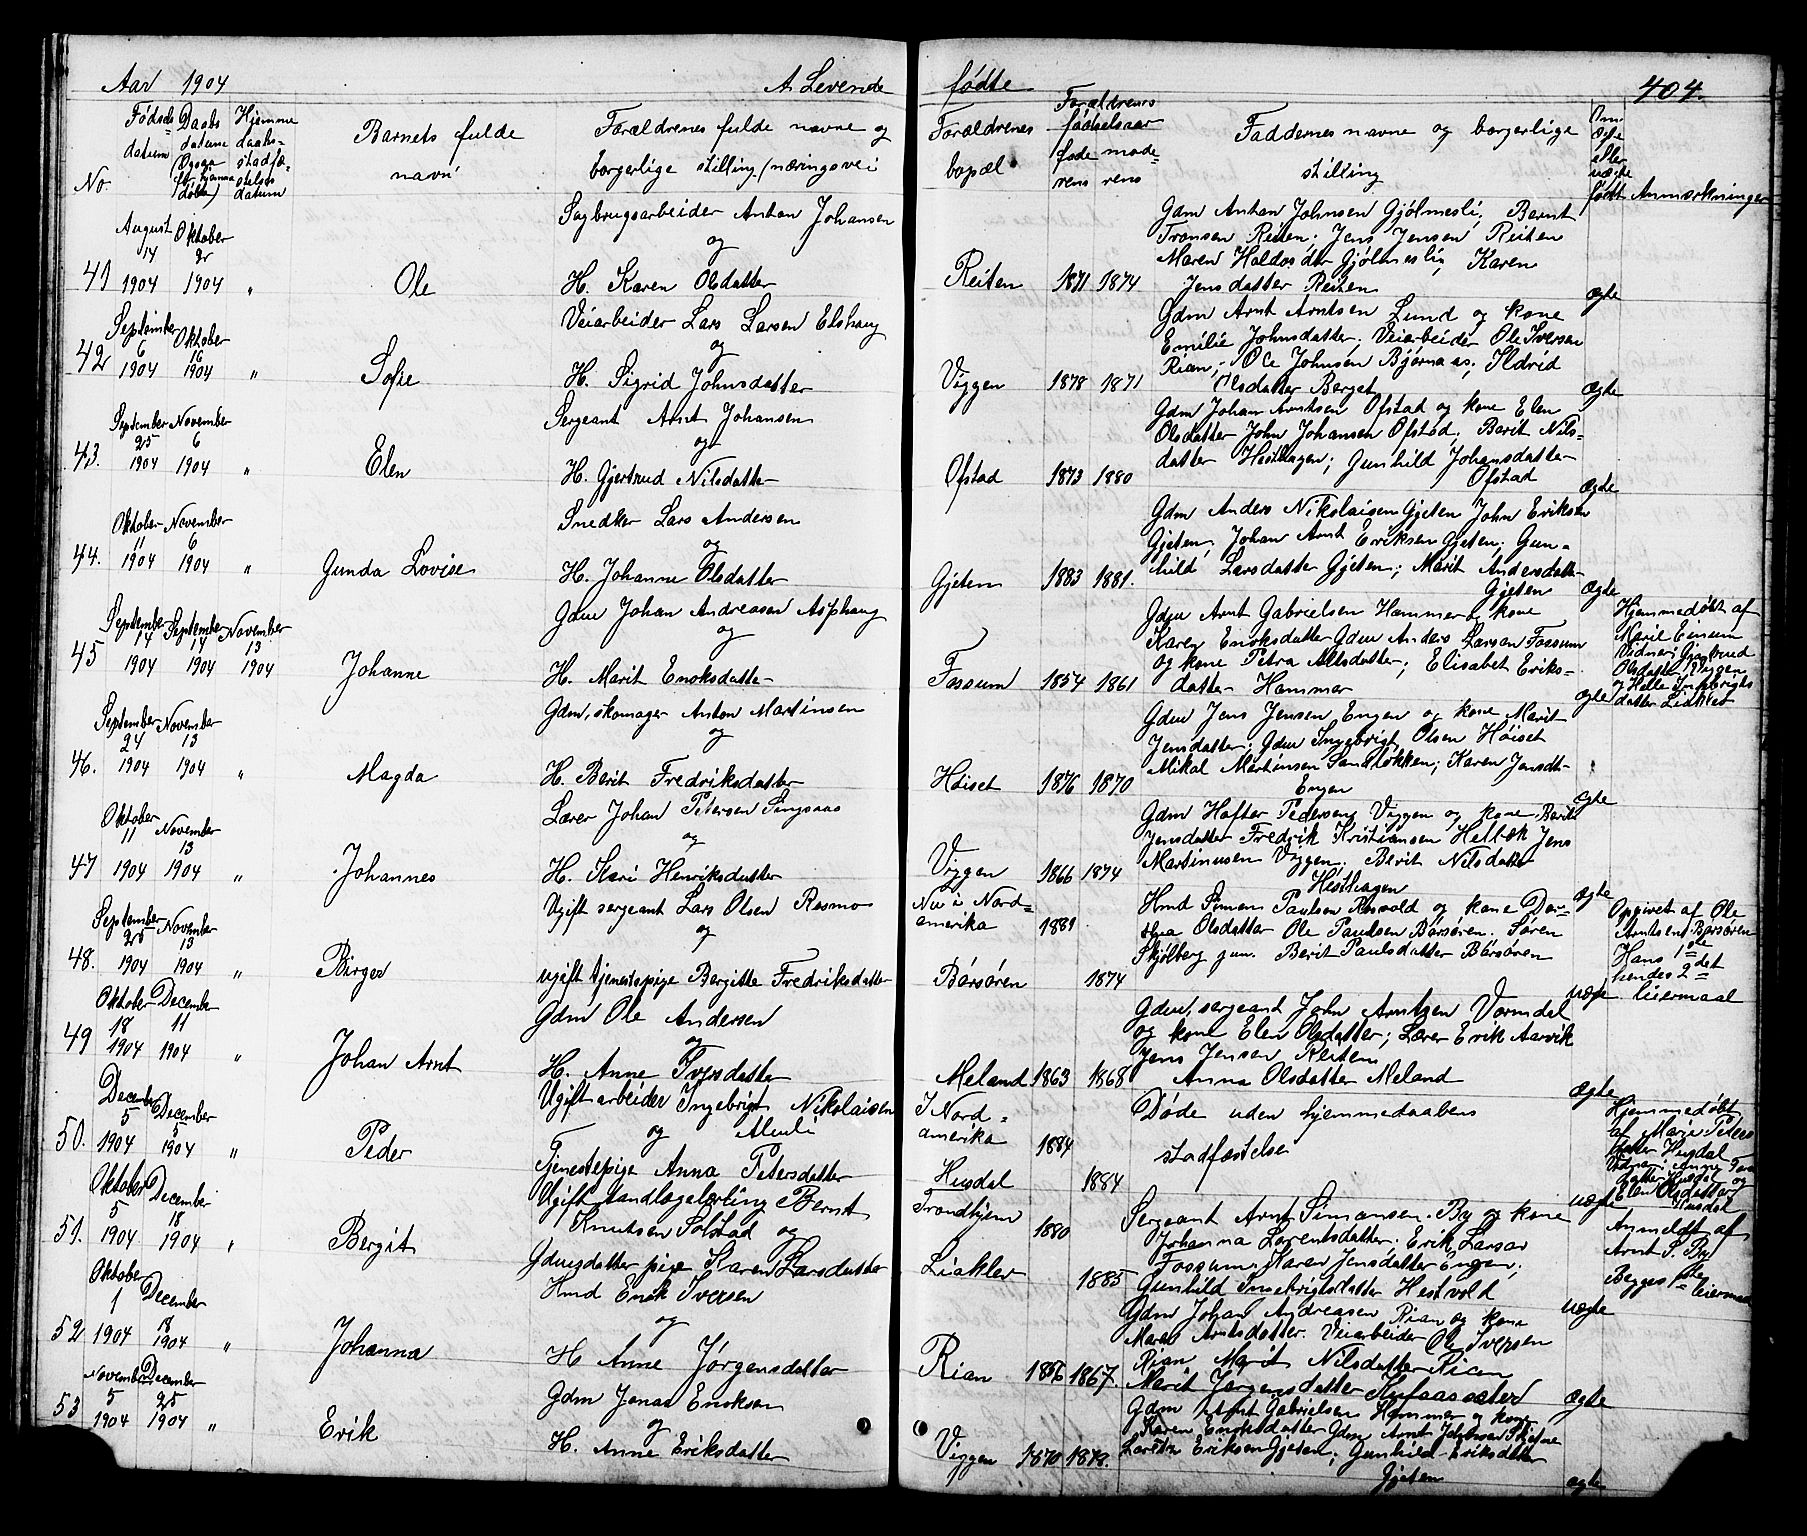 Aar 1904 A Levende fødte 404.
No. Fødsels datum Daabs datum Hjemme daabs- stadfæ- stelses datum Barnets fulde navn Forældrenes fulde navne og borgerlige stilling (næringsvei Forældrenes bopæl Forældrenes fødselsaar faderens moderens Faddernes navne og borgerlige stilling Om ægte eller uægte født Anmærkninger
41 August 14 1904 Oktober 1904 " Ole
Sagbrugsarbeider Anton Johansen
og
H. Karen Olsdatter
Reiten 1871 1874
Gdm Anton Johnsen Gjølmesli, Bernt
Tronsen Reiten; Jens Jensen Reiten
Maren Haldosdtr Gjølmesli, Karen
Jensdatter Reiten
ægte
42 September 6 1904 Oktober 16 1904 " Sofie
Veiarbeider Lars Larsen Elshaug
og
H. Sigrid Johnsdatter
Viggen 1878 1871
Gdm Arnt Arntsen Lund og kone
Emilie Johnsdatter; Veiarbeider Ole Iversen
Rian; Ole Johnsen Bjørnaas; Ildrid
Olsdatter Berget
Ægte
43. September 25 1904 November 6 1904 " Elen
Sergeant Arnt Johansen
og
H. Gjertrud Nilsdatter
Ofstad 1873 1880
Gdm Johan Arntsen Ofstad og kone Elen
Olsdatter John Johansen Ofstad; Berit Nils-
datter Hesthagen; Gunhild Johansdatter
Ofstad
Ægte
44. Oktober 11 1904 November 6 1904 " Gunda Lovise
Snedker Lars Andersen
og
H. Johanne Olsdatter
Gjeten 1883 1881.
Gdm Anders Nikolaisen Gjeten John Eriksen
Gjeten; Johan Arnt Eriksen Gjeten; Gun-
hild Larsdatter Gjeten; Marit Andersdatter
Gjeten
Ægte
45 September 14 1904 September 14 1904 November 13 1904 Johanne
Gdm Johan Andreasen Asphaug
og
H. Marit Enoksdatter
Fossum 1854 1861
Gdm Arnt Gabrielsen Hammer & kone
Karen Enoksdatter Gdm Anders Larsen Fossum
og kone Petra Nilsdatter; Elisabet Eriks-
datter Hammer
ægte
Hjemmedøbt af
Marie Einum
Vidner: Gjertrud
Olsdatter Viggen
datter Liaklev
46. September 24 1904 November 13 1904 " Magda
Gdm, skomager Anton Martinsen
og
H. Berit Fredriksdatter
Høiset 1876 1870
Gdm Jens Jensen Engen og kone Marit
Jensdatter; Gdm Ingebrigt Olsen Høiset
Mikal Martinsen Sandløkken; Karen Jensdtr
Engen
ægte
47 Oktober 11 1904 November 13 1904 " Johannes
Lærer Johan Petersen Singsaas
og
H. Kari Henriksdatter
Viggen 1866 1874
Gdm Hafter Pedersen Viggen og kone Berit
Jensdatter Fredrik Kristiansen Helbæk Jens
Martinusen Viggen. Berit Nilsdatter
Hesthagen
ægte
48. September 25 1904 November 13 1904 " Birger
Ugift sergeant Lars Olsen Rosmo
og
ugift tjenestepige Bergitte Fredriksdatter
Nu i Nord-
amerika 1881
Børsøren 1874
Hmd Simon Paulsen og kone Dor-
thea Olsdatter Ole Paulsen Børsøren. Søren
Skjølberg jun. Berit Paulsdatter Børsøren
uægte
Opgivet af Ole
Arntsen Børsøren
Hans 1ste
hendes 2det
leiermaal
49 Oktober 18 1904 December 11 1904 " Johan Arnt
Gdm Ole Andersen
og
H. Anne Iversdatter
Meland 1863 1868
Gdm, sergeant John Arntzen Vormdal
og kone Elen Olsdatter; Lærer Erik Aarvik
Jens Jensen Reiten
Anna Olsdatter Meland
Ægte
50. December 5 1904 December 5 1904 " Peder
Ugift arbeider Ingebrigt Nikolaisen
og Moli
Tjenestepige Anna Petersdatter
I Nord-
amerika 1884
Husdal 1884
Døde uden hjemmedaabens
stadfæstelse
uægte
Hjemmedøbt
af Marie Peters
datter Husdal
Vidner: Anne
datter Husdal og
Elen Olsdatter
Husdal
51. Oktober 5 1904 December 18 1904 " Bergit
Ugift handlagelærling Bernt
Knutsen Solstad og
Gdmsdatter pige Karen Larsdatter
Trondhjem 1880
Liaklev 1885
Sergeant Arnt Simonsen By og kone
Johanna Lorentsdatter. Erik Larsen
Fossum. Karen Jensdatter Engen;
Gunhild Ingebrigtsdatter Hestvold
uægte
Anmeldt af
Arnt S. By
Begges 1ste
leiermaal
52 Oktober 1 1904 December 18 1904 " Johanna
Hmd Enok Iversen
og
H Anne Jørgensdatter
Rian 1856 1867.
Gdm Johan Andreasen Rian og kone
Maren Arntsdatter. Veiarbeider Ole Iversen
Rian Marit Nilsdatter Rian
Marit Jørgensdatter
Ægte
53 November 5 1904 December 25 1904 " Erik
Gdm Jonas Enoksen
og
H. Anne Eriksdatter
Viggen 1870 1878.
Gdm Arnt Gabrielsen Hammer og kone
Karen Enoksdatter Gdm Arnt
Eriksen Gjeten; Gunhild Eriksdatter
Gjeten
ægte